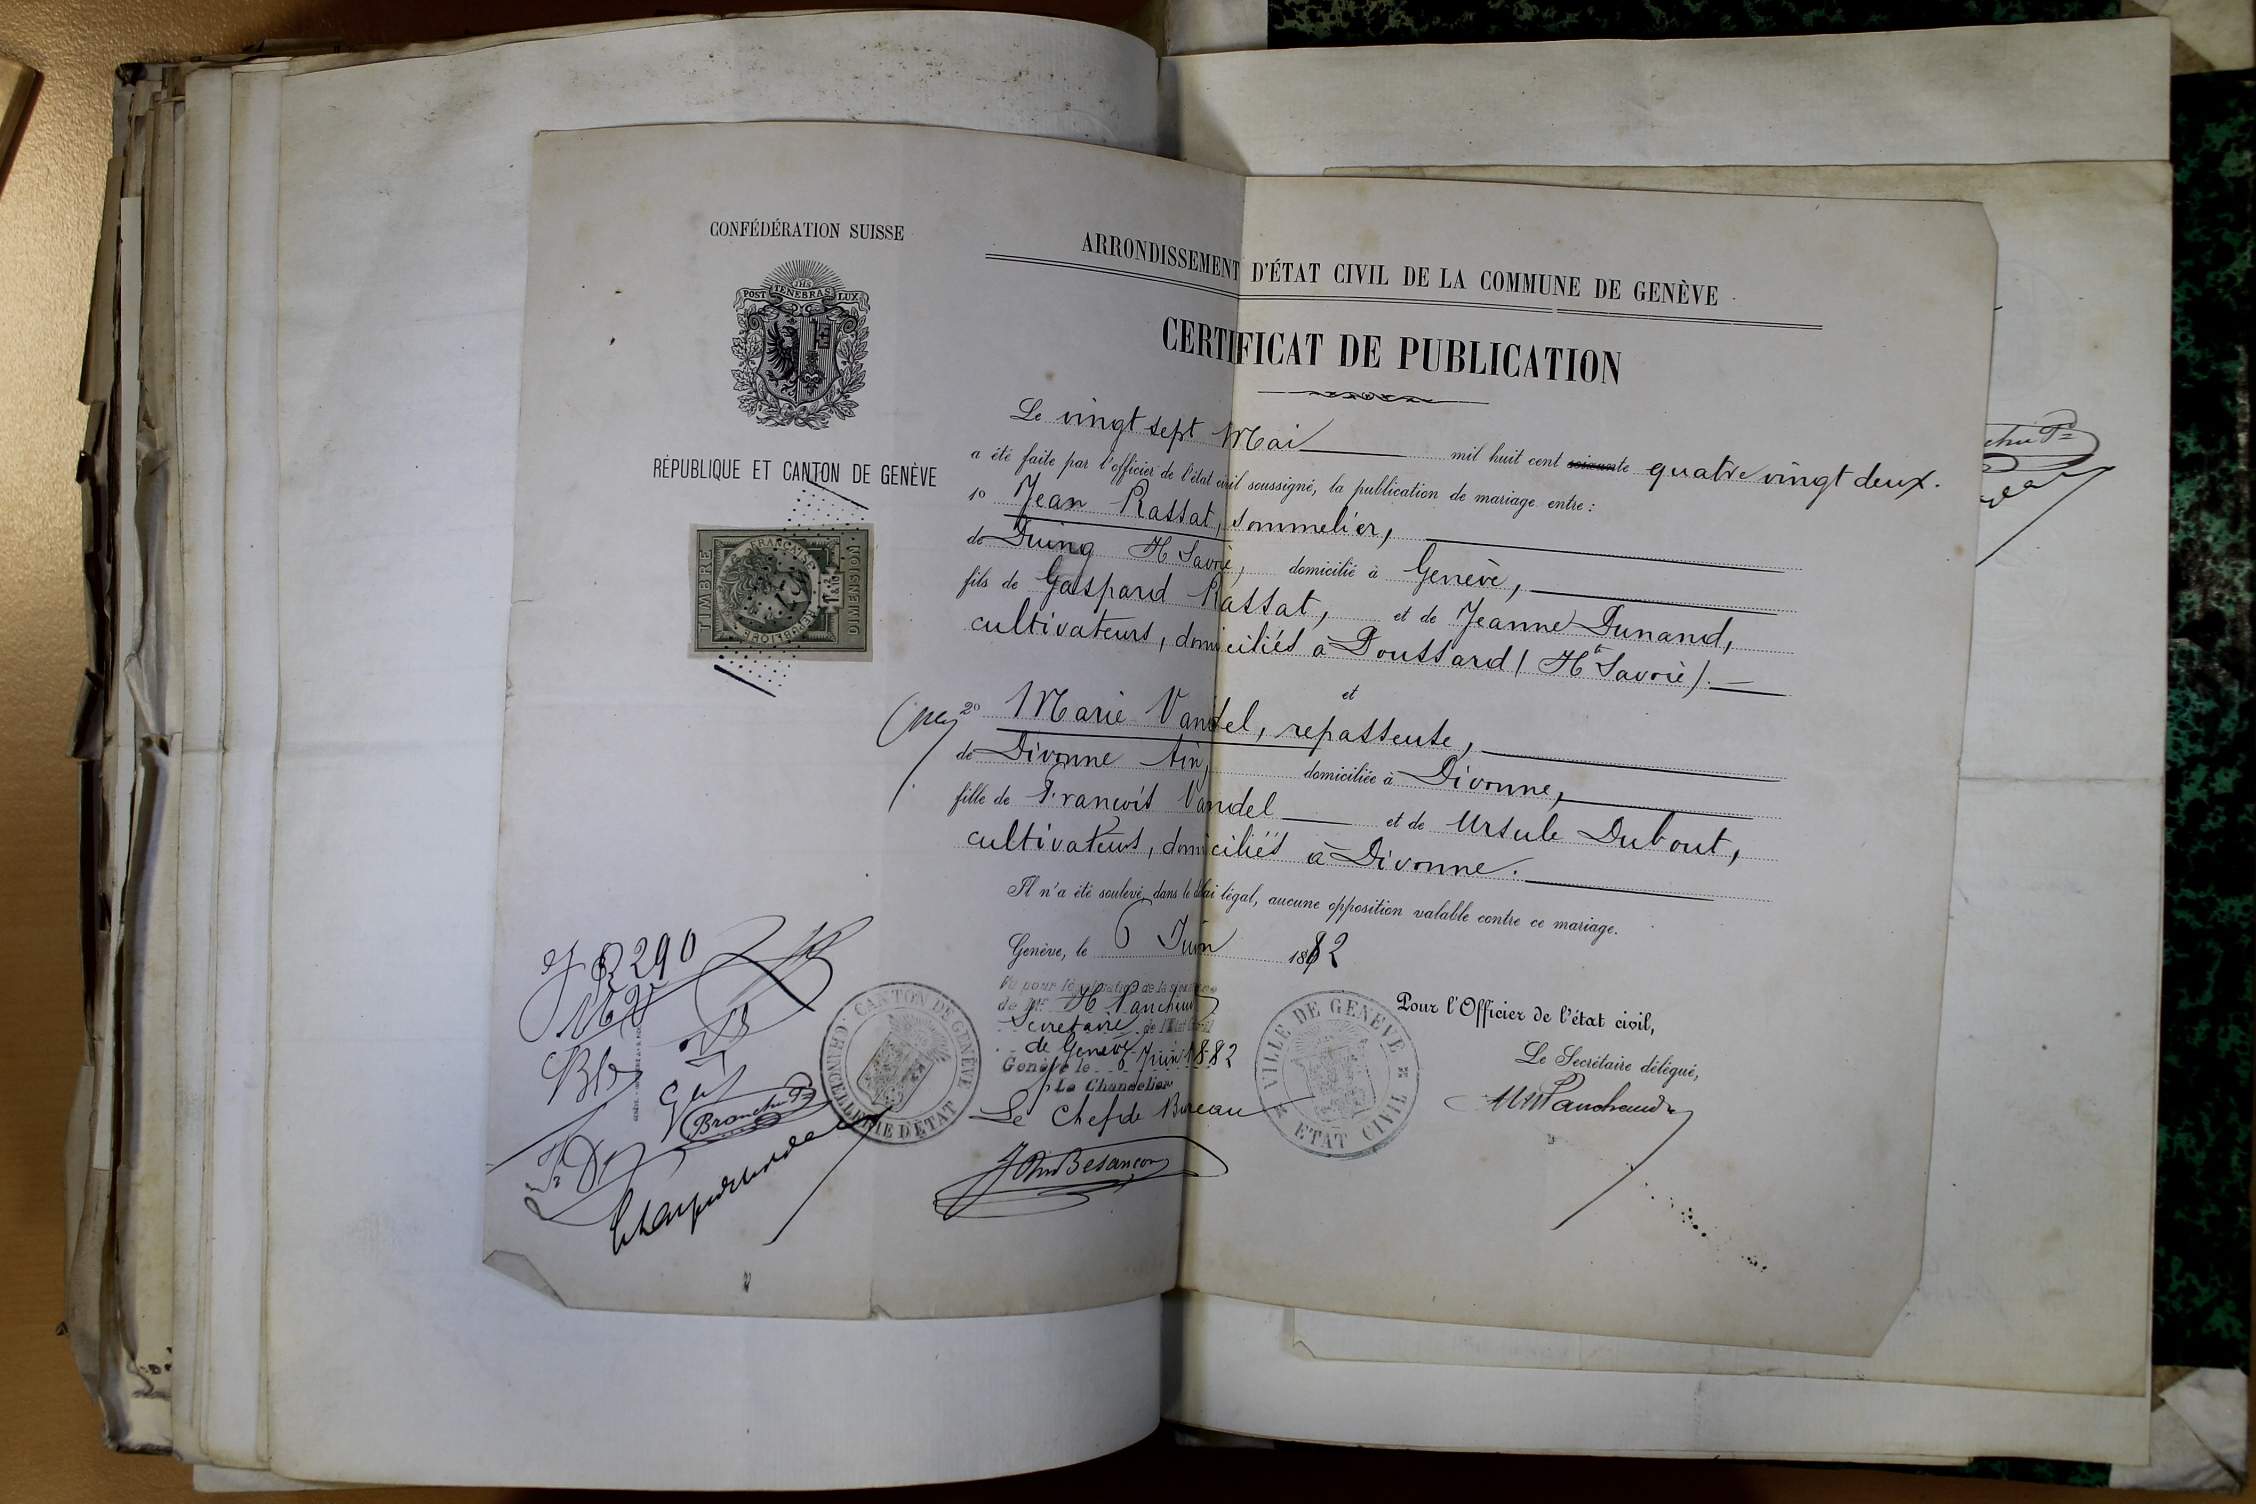 CONFÉDÉRATION SUISSE
POST TENEBRAS LUX
RÉPUBLIQUE ET CANTON DE GENÈVE
TIMBRE
DIMENSION
ARRONDISSEMENT D'ÉTAT CIVIL DE LA COMMUNE DE GENÈVE
CERTIFICAT DE PUBLICATION
Le vingt sept Mai mil huit cent soixante quatre vingt deux.
a été faite par l'officier de l'état civil soussigné, la publication de mariage entre :
1º Jean Rassat, sommelier,
de Duing Hte Savoie, domicilié à Genève,
fils de Gaspard Rassat, et de Jeanne Dunand,
cultivateurs, domiciliés à Doussard (Hte Savoie).
et
2º Marie Vandel, repasseuse,
de Divonne Ain, domiciliée à Divonne,
fille de François Vandel et de Ursule Dubout,
cultivateurs, domiciliés à Divonne.
Il n'a été soulevé, dans le délai légal, aucune opposition valable contre ce mariage.
Genève, le 6 Juin 1882
Vu pour légalisation de la signature
de Mr H. Panchaud
Secrétaire de l'Etat Civil
de Genève
Genève le 6 Juin 1882
p. Le Chancelier
Le Chef de Bureau
Besançon
CHANCELLERIE D'ÉTAT CANTON DE GENÈVE
VILLE DE GENÈVE
ETAT CIVIL
Pour l'Officier de l'état civil,
Le Secrétaire délégué,
Panchaud
290